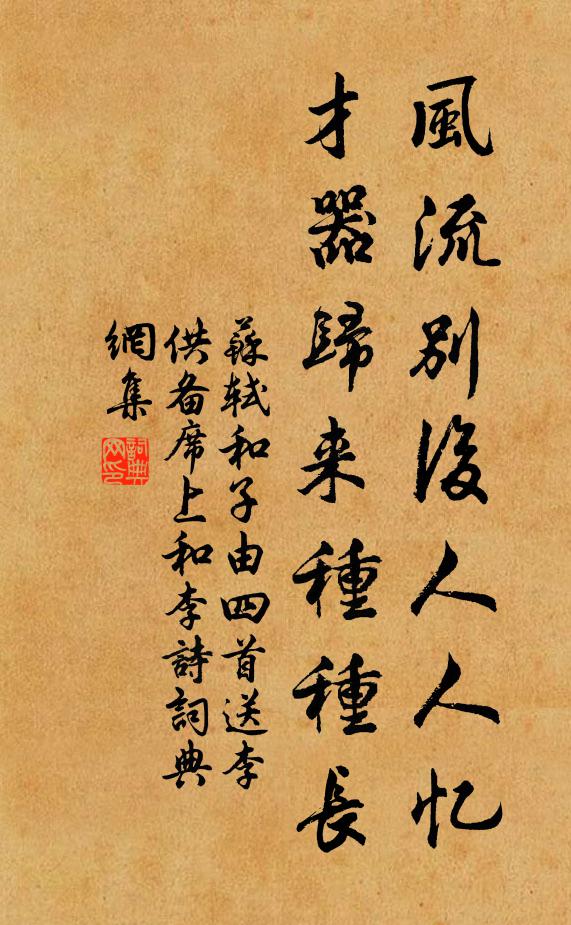 風流別後人人忆
才器歸来種種長
蘇軾和子由四首送李
供备席上和李詩詞典
網集
詞典网印